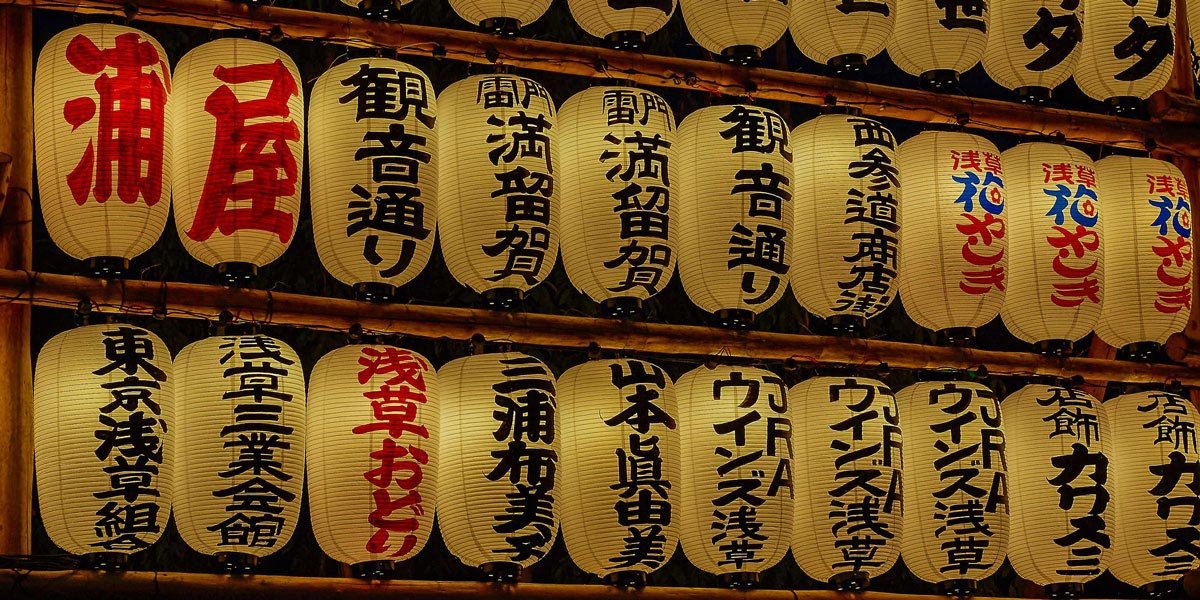 世
タ
タ
浦
屋
観音通り
雷門
満留賀
雷門
満留賀
観音通り
西参道商店街
浅草
花やしき
浅草
花やしき
浅草
花やしき
東京浅草組合
浅草三業会館
浅草おどり
三浦布美子
山本眞由美
JRA
ウインズ浅草
JRA
ウインズ浅草
JRA
ウインズ浅草
店飾
カワスミ
店飾
カワスミ